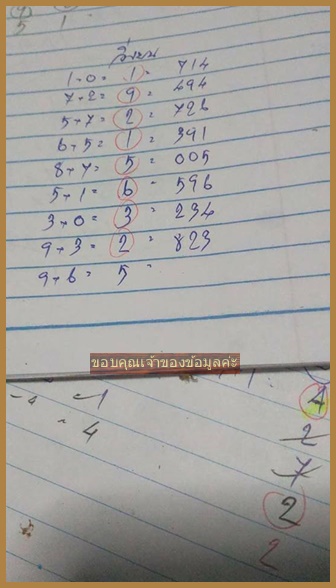 วิ่งบน
1+0= 1 = 714
7+2= 9 = 494
5+7= 2 = 726
6+5= 1 = 391
8+7= 5 = 005
5+1= 6 = 596
3+0= 3 = 234
9+3= 2 = 823
9+6= 5 =
ขอบคุณเจ้าของข้อมูลค่ะ
4
1
4
2
7
2
2